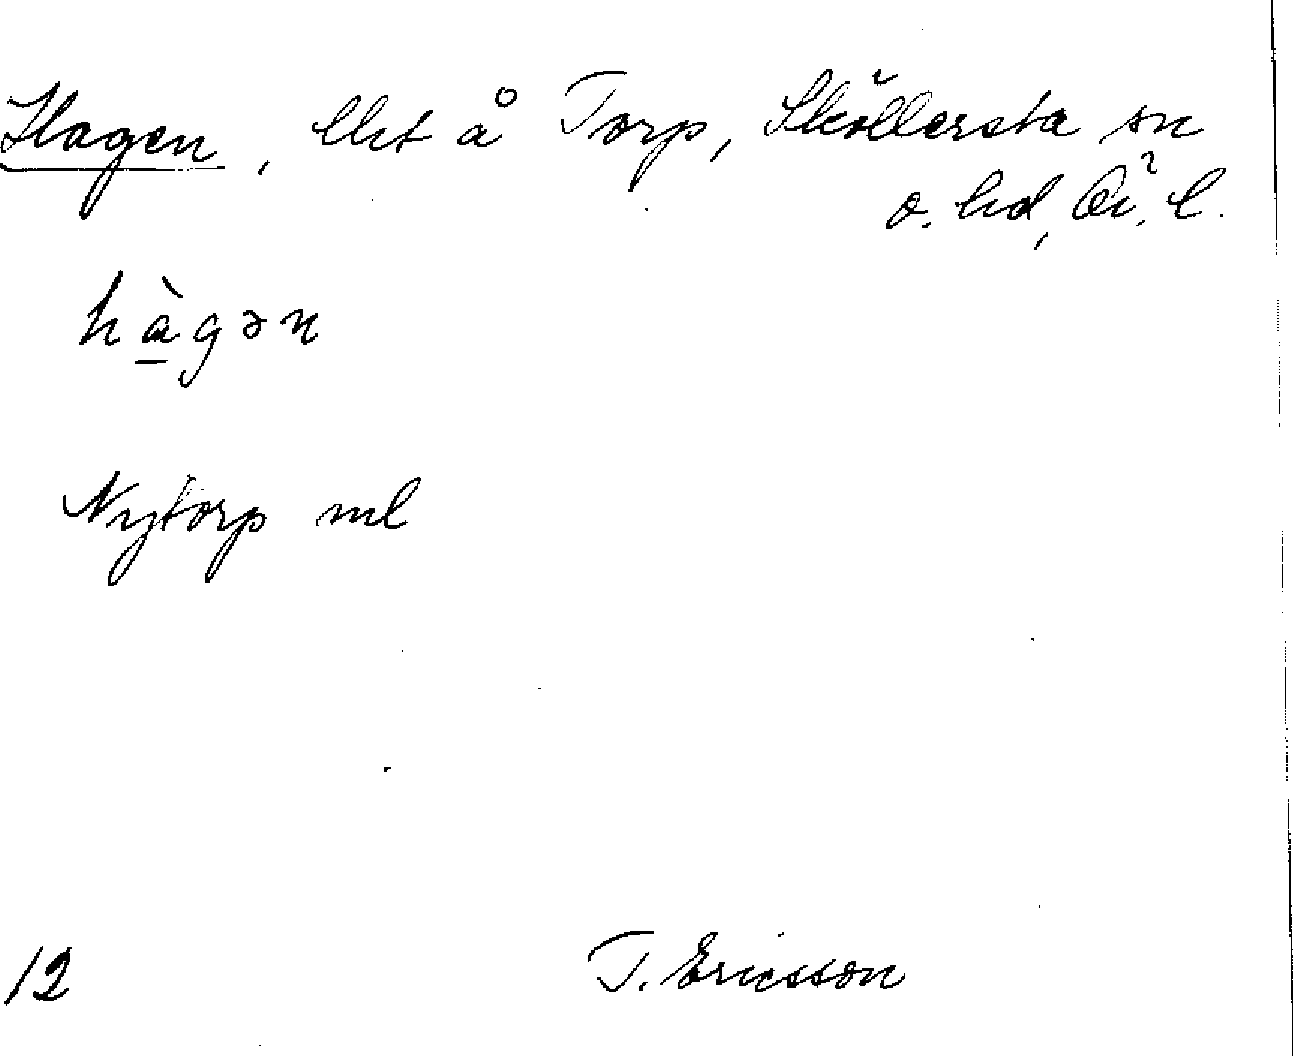 Hagen, lht å Torp, Sköllersta sn
o. hd, Ör. l.
hàgən
Nytorp ml
12 T. Ericsson